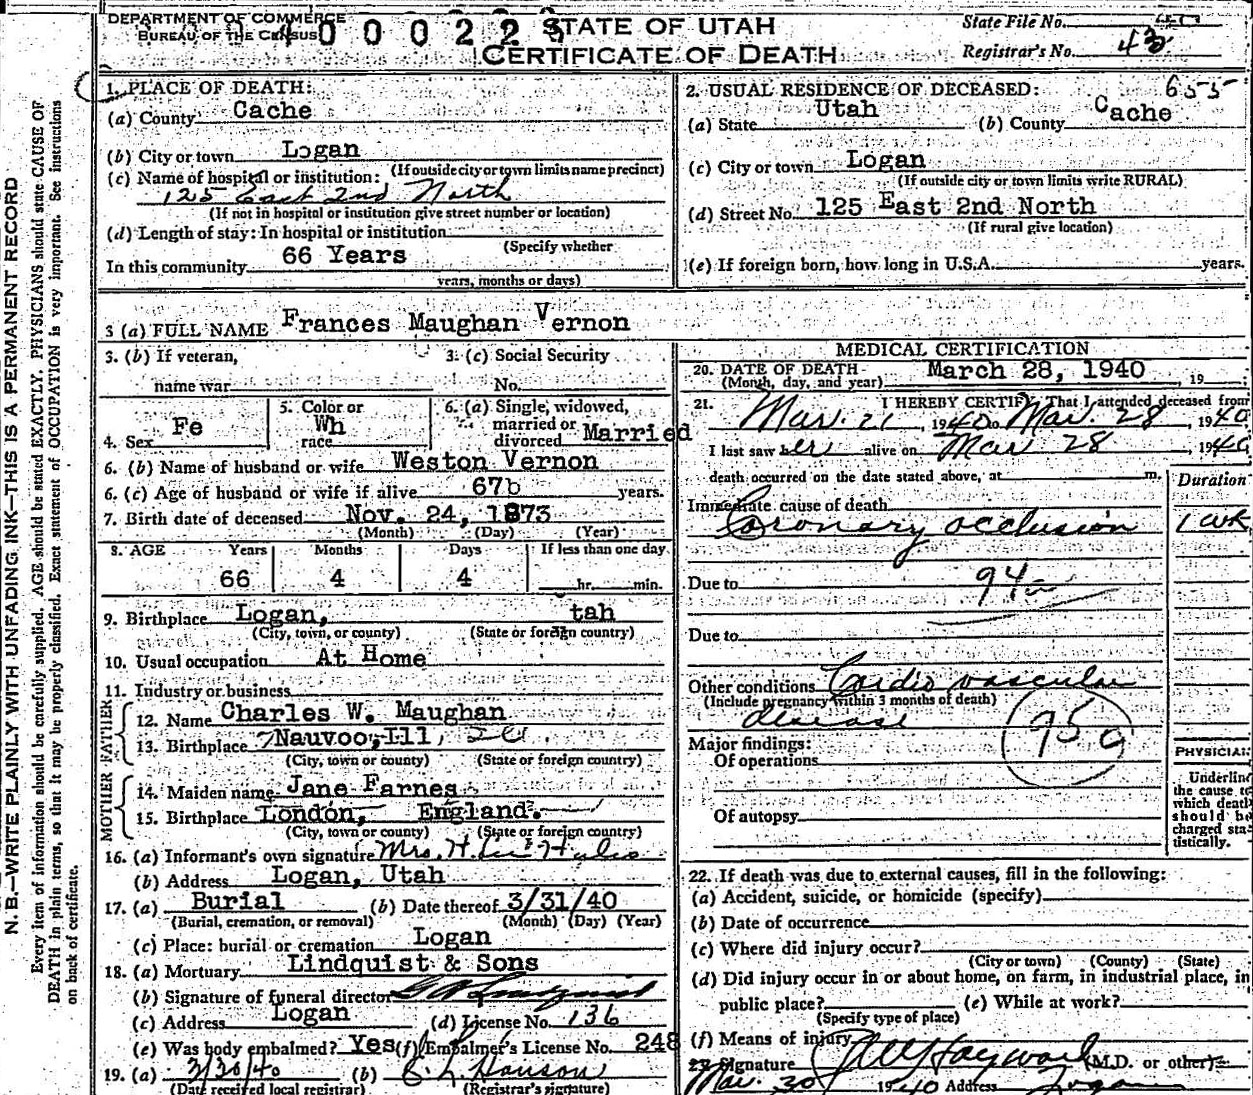 DEPARTMENT OF COMMERCE
BUREAU OF THE CENSUS
STATE OF UTAH
CERTIFICATE OF DEATH
State File No.
Registrar's No. 43
N. B.—WRITE PLAINLY WITH UNFADING INK—THIS IS A PERMANENT RECORD
Every item of information should be carefully supplied. AGE should be stated EXACTLY. PHYSICIANS should state CAUSE OF
DEATH in plain terms, so that it may be properly classified. Exact statement of OCCUPATION is very important. See instructions
on back of certificate.
1. PLACE OF DEATH:
(a) County Cache
(b) City or town Logan
(If outside city or town limits name precinct)
(c) Name of hospital or institution:
125 East 2nd North
(If not in hospital or institution give street number or location)
(d) Length of stay: In hospital or institution
(Specify whether
In this community 66 Years
years, months or days)
2. USUAL RESIDENCE OF DECEASED: 655
(a) State Utah (b) County Cache
(c) City or town Logan
(If outside city or town limits write RURAL)
(d) Street No. 125 East 2nd North
(If rural give location)
(e) If foreign born, how long in U.S.A. years.
3 (a) FULL NAME Frances Maughan Vernon
3. (b) If veteran,
name war
3. (c) Social Security
No.
4. Sex Fe
5. Color or
race Wh
6. (a) Single, widowed,
married or
divorced Married
6. (b) Name of husband or wife Weston Vernon
6. (c) Age of husband or wife if alive 67 years.
7. Birth date of deceased Nov. 24, 1873
(Month) (Day) (Year)
8. AGE Years Months Days If less than one day
66 4 4 hr. min.
9. Birthplace Logan, tah
(City, town, or county) (State or foreign country)
10. Usual occupation At Home
11. Industry or business
FATHER
12. Name Charles W. Maughan
13. Birthplace Nauvoo, Ill,
(City, town or county) (State or foreign country)
MOTHER
14. Maiden name Jane Farnes
15. Birthplace London, England.
(City, town or county) (State or foreign country)
16. (a) Informant's own signature Mrs. H.
(b) Address Logan, Utah
17. (a) Burial (b) Date thereof 3/31/40
(Burial, cremation, or removal) (Month) (Day) (Year)
(c) Place: burial or cremation Logan
18. (a) Mortuary Lindquist & Sons
(b) Signature of funeral director
(c) Address Logan (d) License No. 136
(e) Was body embalmed? Yes (f) Embalmer's License No. 248
19. (a) 3/30/40 (b)
(Date received local registrar) (Registrar's signature)
MEDICAL CERTIFICATION
20. DATE OF DEATH
(Month, day, and year) March 28, 1940, 19
21. I HEREBY CERTIFY, That I attended deceased from
Mar. 21, 1940 to Mar. 28, 1940
I last saw her alive on Mar 28, 1940
death occurred on the date stated above, at m.
Duration
Immediate cause of death
Coronary occlusion 1 wk
Due to 94a
Due to
Other conditions Cardio vascular
(Include pregnancy within 3 months of death)
disease
Major findings:
Of operations
Of autopsy
PHYSICIAN
Underline
the cause to
which death
should be
charged sta-
tistically.
22. If death was due to external causes, fill in the following:
(a) Accident, suicide, or homicide (specify)
(b) Date of occurrence
(c) Where did injury occur?
(City or town) (County) (State)
(d) Did injury occur in or about home, on farm, in industrial place, in
public place? (e) While at work?
(Specify type of place)
(f) Means of injury
23. Signature Hayward (M.D. or other)
Mar. 30 1940 Address Logan